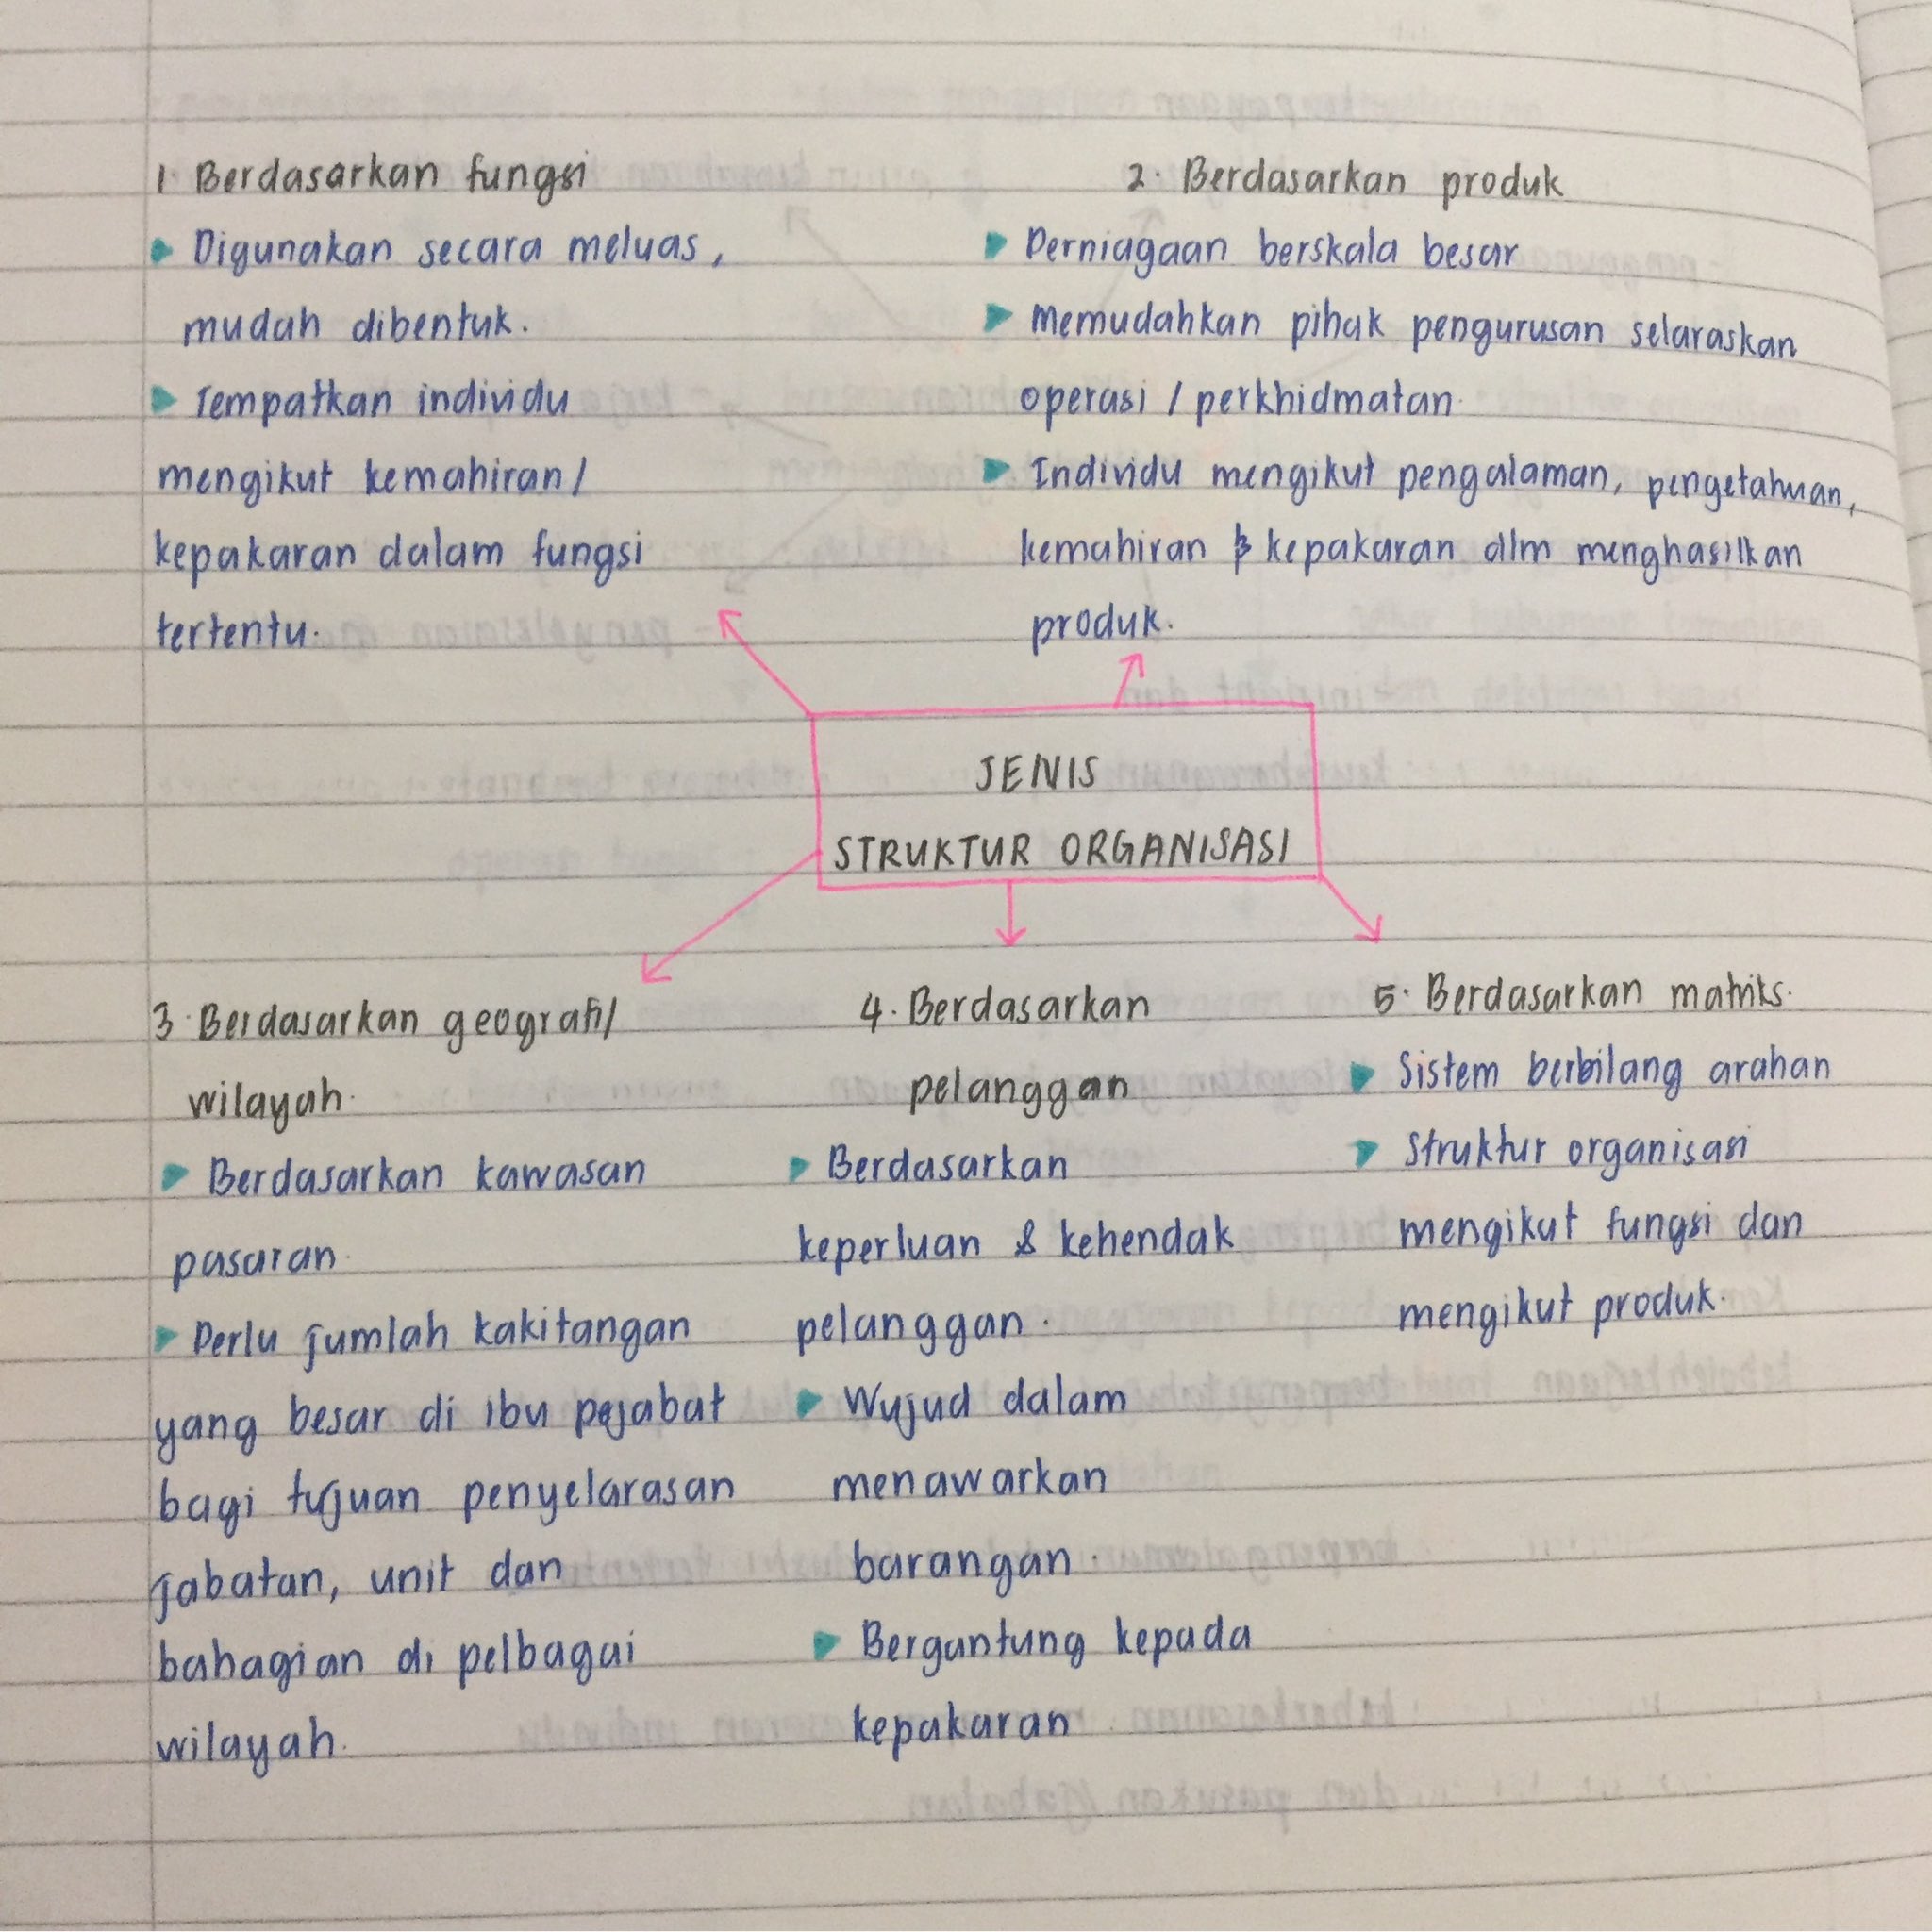 1. Berdasarkan fungsi
Digunakan secara meluas,
mudah dibentuk.
Tempatkan individu
mengikut kemahiran/
kepakaran dalam fungsi
tertentu.
2. Berdasarkan produk
Perniagaan berskala besar
Memudahkan pihak pengurusan selaraskan
operasi / perkhidmatan.
Individu mengikut pengalaman, pengetahuan,
kemahiran & kepakaran dlm menghasilkan
produk.
JENIS
STRUKTUR ORGANISASI
3. Berdasarkan geografi/
wilayah.
Berdasarkan kawasan
pasaran.
Perlu jumlah kakitangan
yang besar di ibu pejabat
bagi tujuan penyelarasan
jabatan, unit dan
bahagian di pelbagai
wilayah.
4. Berdasarkan
pelanggan
Berdasarkan
keperluan & kehendak
pelanggan.
Wujud dalam
menawarkan
barangan.
Bergantung kepada
kepakaran
5. Berdasarkan matriks.
Sistem berbilang arahan
Struktur organisasi
mengikut fungsi dan
mengikut produk.